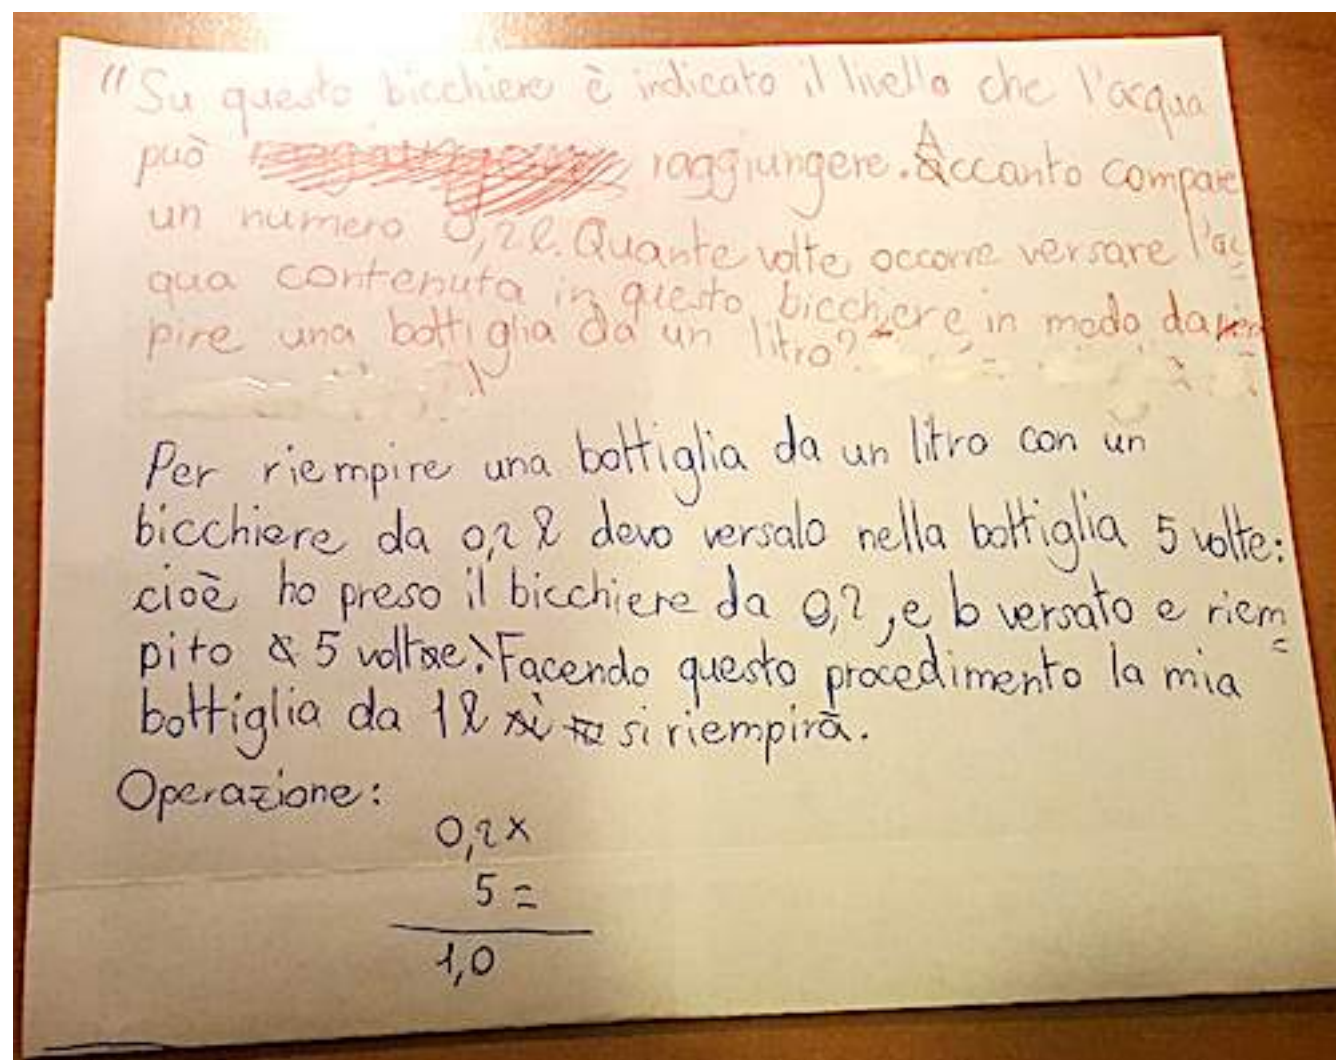 "Su questo bicchiere è indicato il livello che l'acqua
può raggiungere. Accanto compare
un numero 0,2 l. Quante volte occorre versare l'ac
qua contenuta in questo bicchiere in modo da riem
pire una bottiglia da un litro?"
Per riempire una bottiglia da un litro con un
bicchiere da 0,2 l devo versalo nella bottiglia 5 volte:
cioè ho preso il bicchiere da 0,2, e lo versato e riem
pito 5 volte. Facendo questo procedimento la mia
bottiglia da 1 l si riempirà.
Operazione:
0,2 x
5 =
1,0